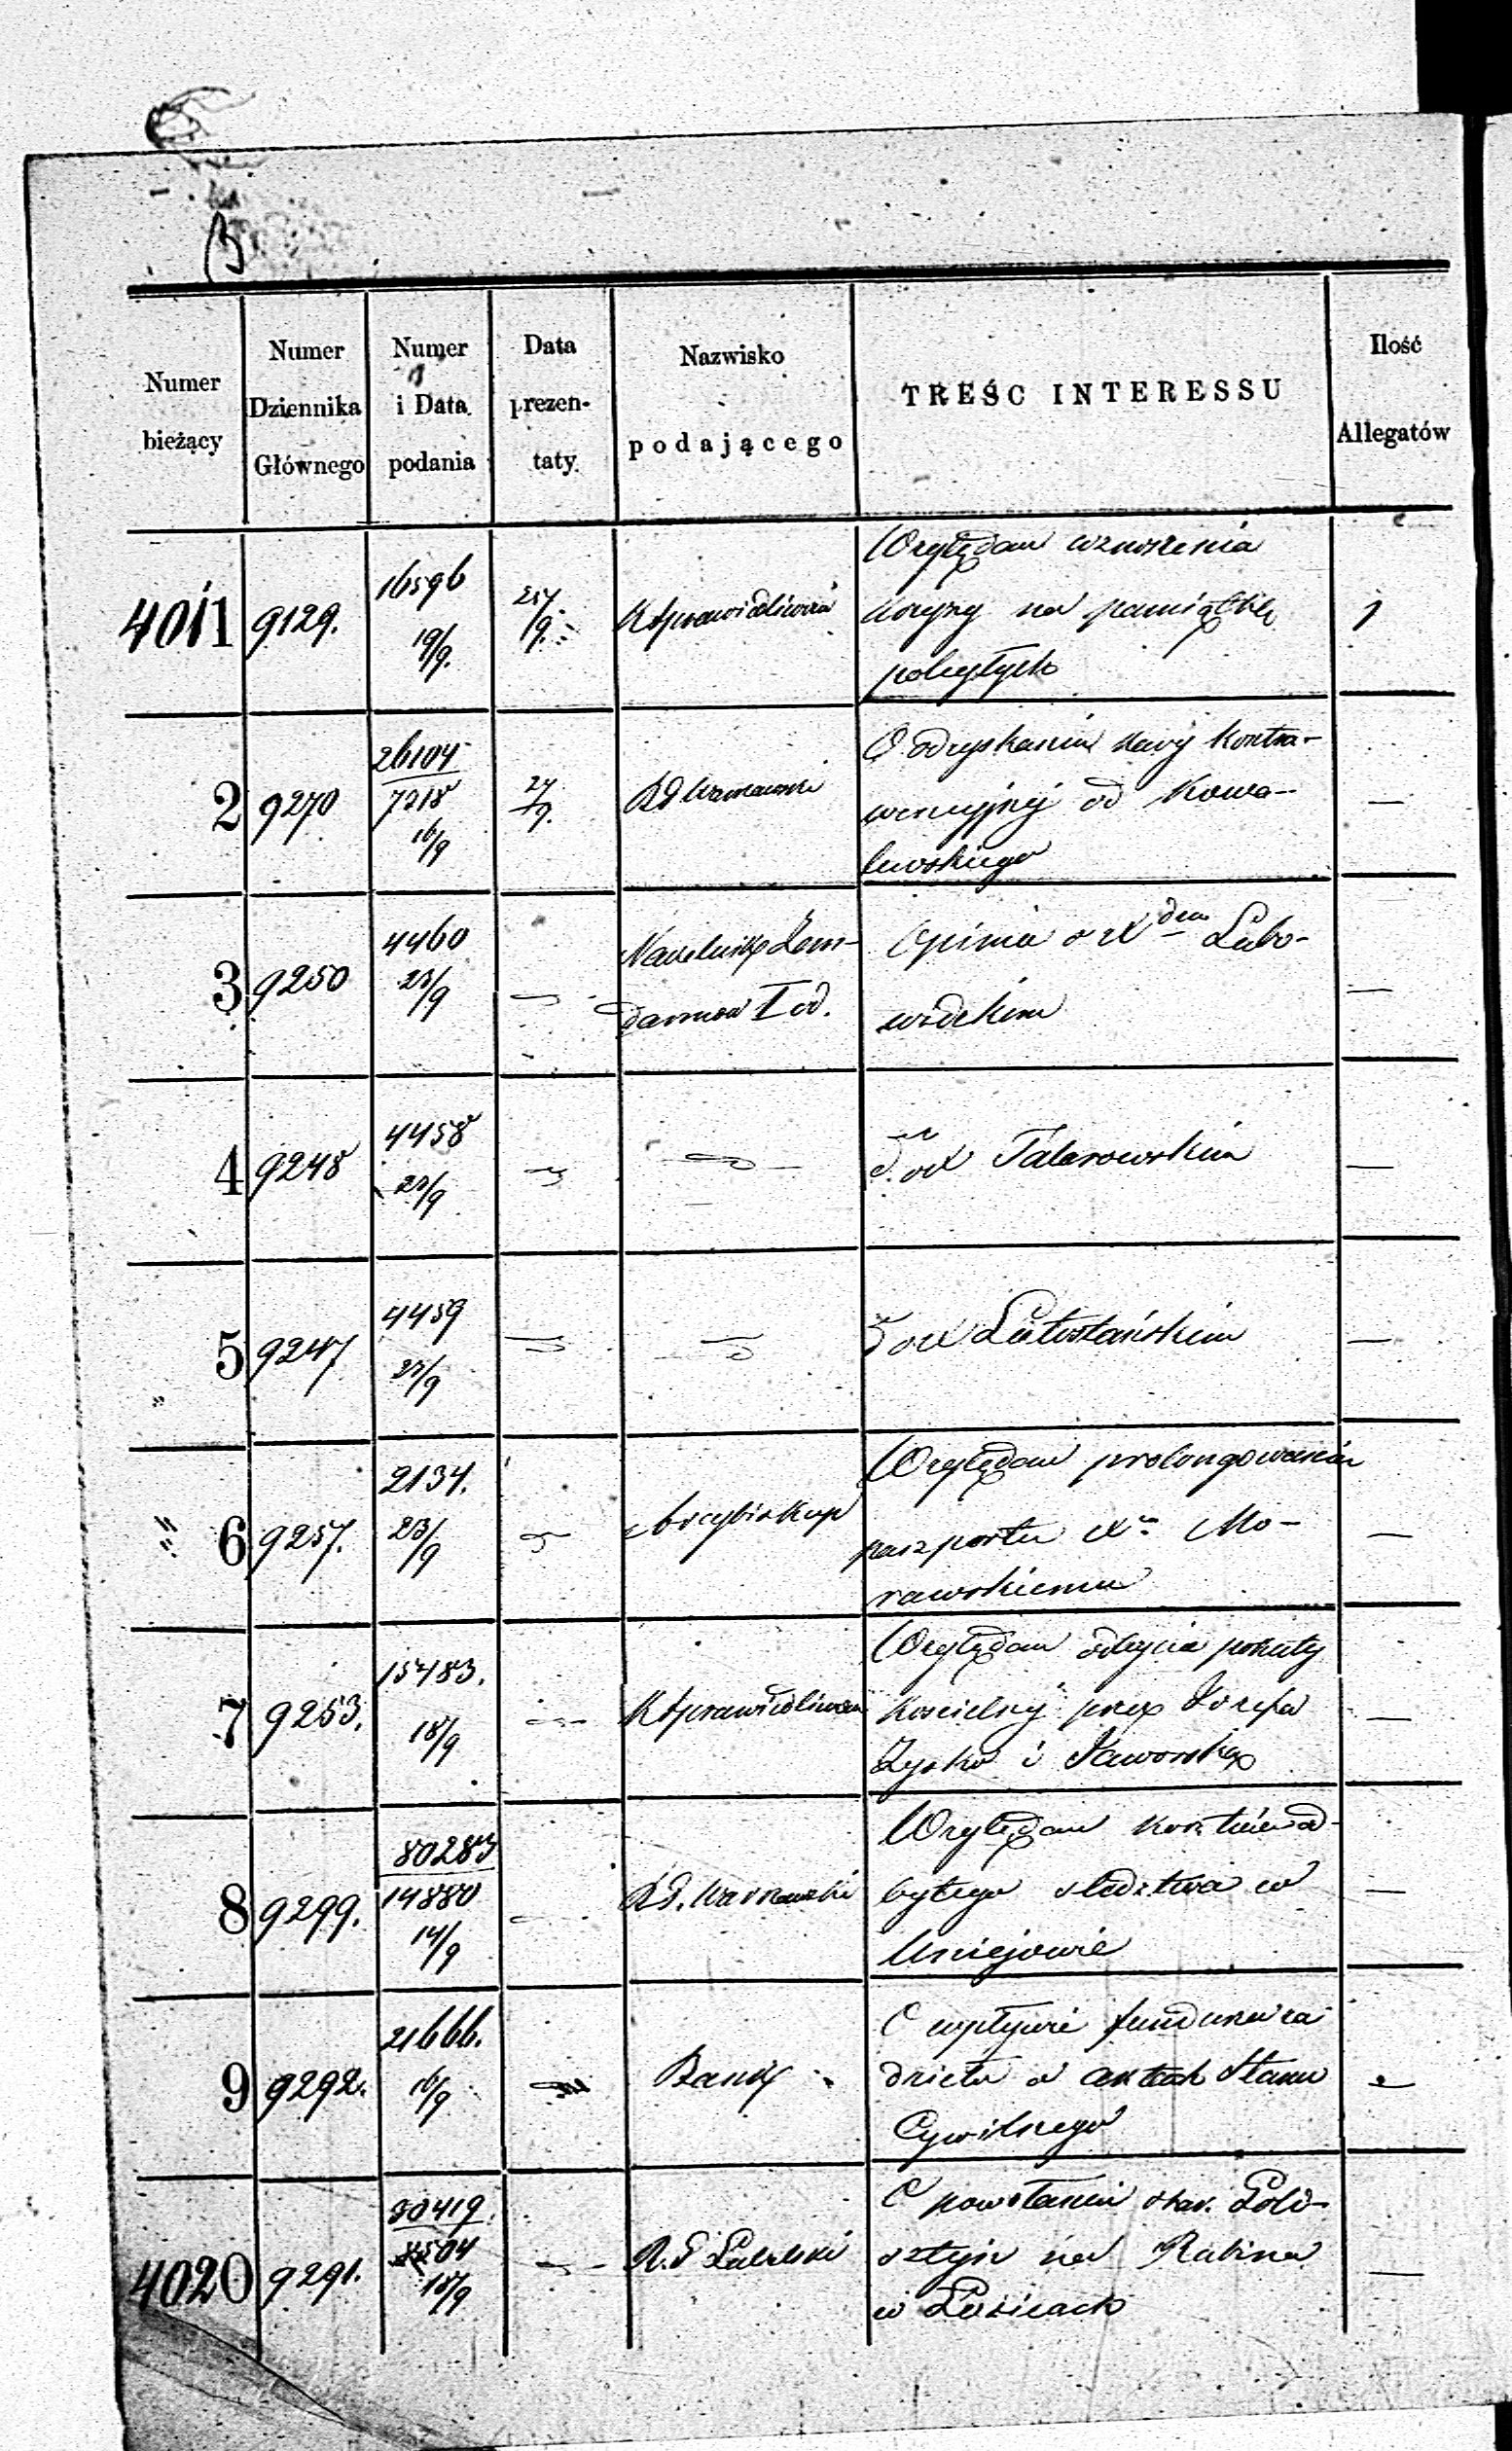 Numer bieżący
Numer Dziennika Głównego
Numer i Data podania
Data prezentaty
Nazwisko podającego
TREŚC INTERESSU
Ilość Allegatów
4011 9129. 16596 19/9. 24/9. KSprawiedliwości
Względem wznoszenia
na pamiątkę
poległych
1
2 9270 26104 7218 16/9 24/9. RG Warszawski
O odzyskaniu kary kontra-
wencyjnej od Kowa-
lewskiego
—
3 9250 4460 23/9 —
Naczelnik Żan-
darmów I od.
Opinia o X dzem Lubo-
—
4 9248 4458 23/9 — —
d. o X Talarowskim
—
5 9247 4459 23/9 — —
d o X Lutostańskim
—
6 9257. 2134. 23/9 — Arcybiskup
Względem prolongowania
paszportu X Mo-
rawskiemu
—
7 9253. 15483. 18/9 — KSprawiedliwości
Względem odbycia pokuty
kościelnej przez Józefa
Zysko i Jaworską
—
8 9299. 80283 14880 14/9 — RG. Warszawski
Względem
bytego śledztwa w
Uniejowie
—
9 9292. 21666. 16/9 — Bank
O wpływie funduszu za
dzieło o aktach Stanu
Cywilnego
—
4020 9291. 30419. 4504 18/9 — R. G Lubelski
O powołaniu star. Gold-
sztejn na Rabina
w Łosicach
—